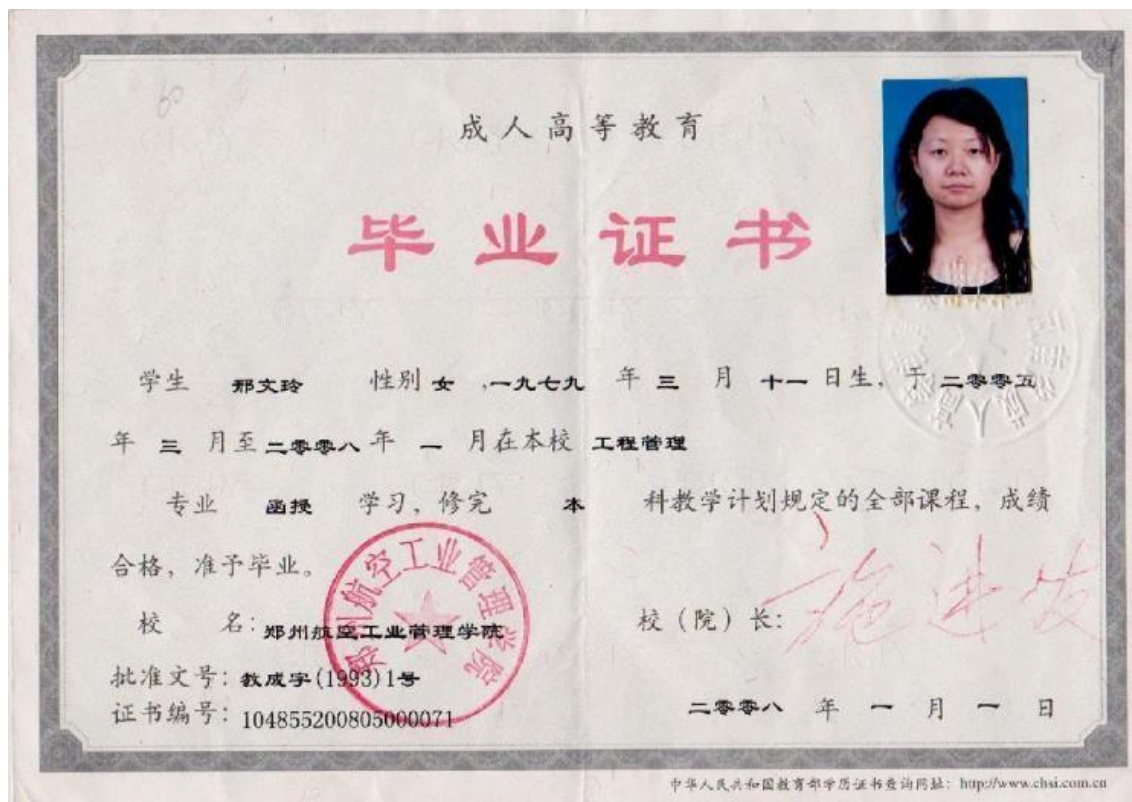 成人高等教育
毕业证书
学生 邢文玲 性别 女 ,一九七九 年 三 月 十一 日生,于 二零零五
年 三 月至 二零零八 年 一 月在本校 工程管理
专业 函授 学习,修完 本 科教学计划规定的全部课程,成绩
合格,准予毕业。
校 名:郑州航空工业管理学院
校(院)长:施进发
批准文号:教成字(1993)1号
证书编号:104855200805000071
二零零八 年 一 月 一 日
郑州航空工业管理学院
中华人民共和国教育部学历证书查询网址:http://www.chsi.com.cn